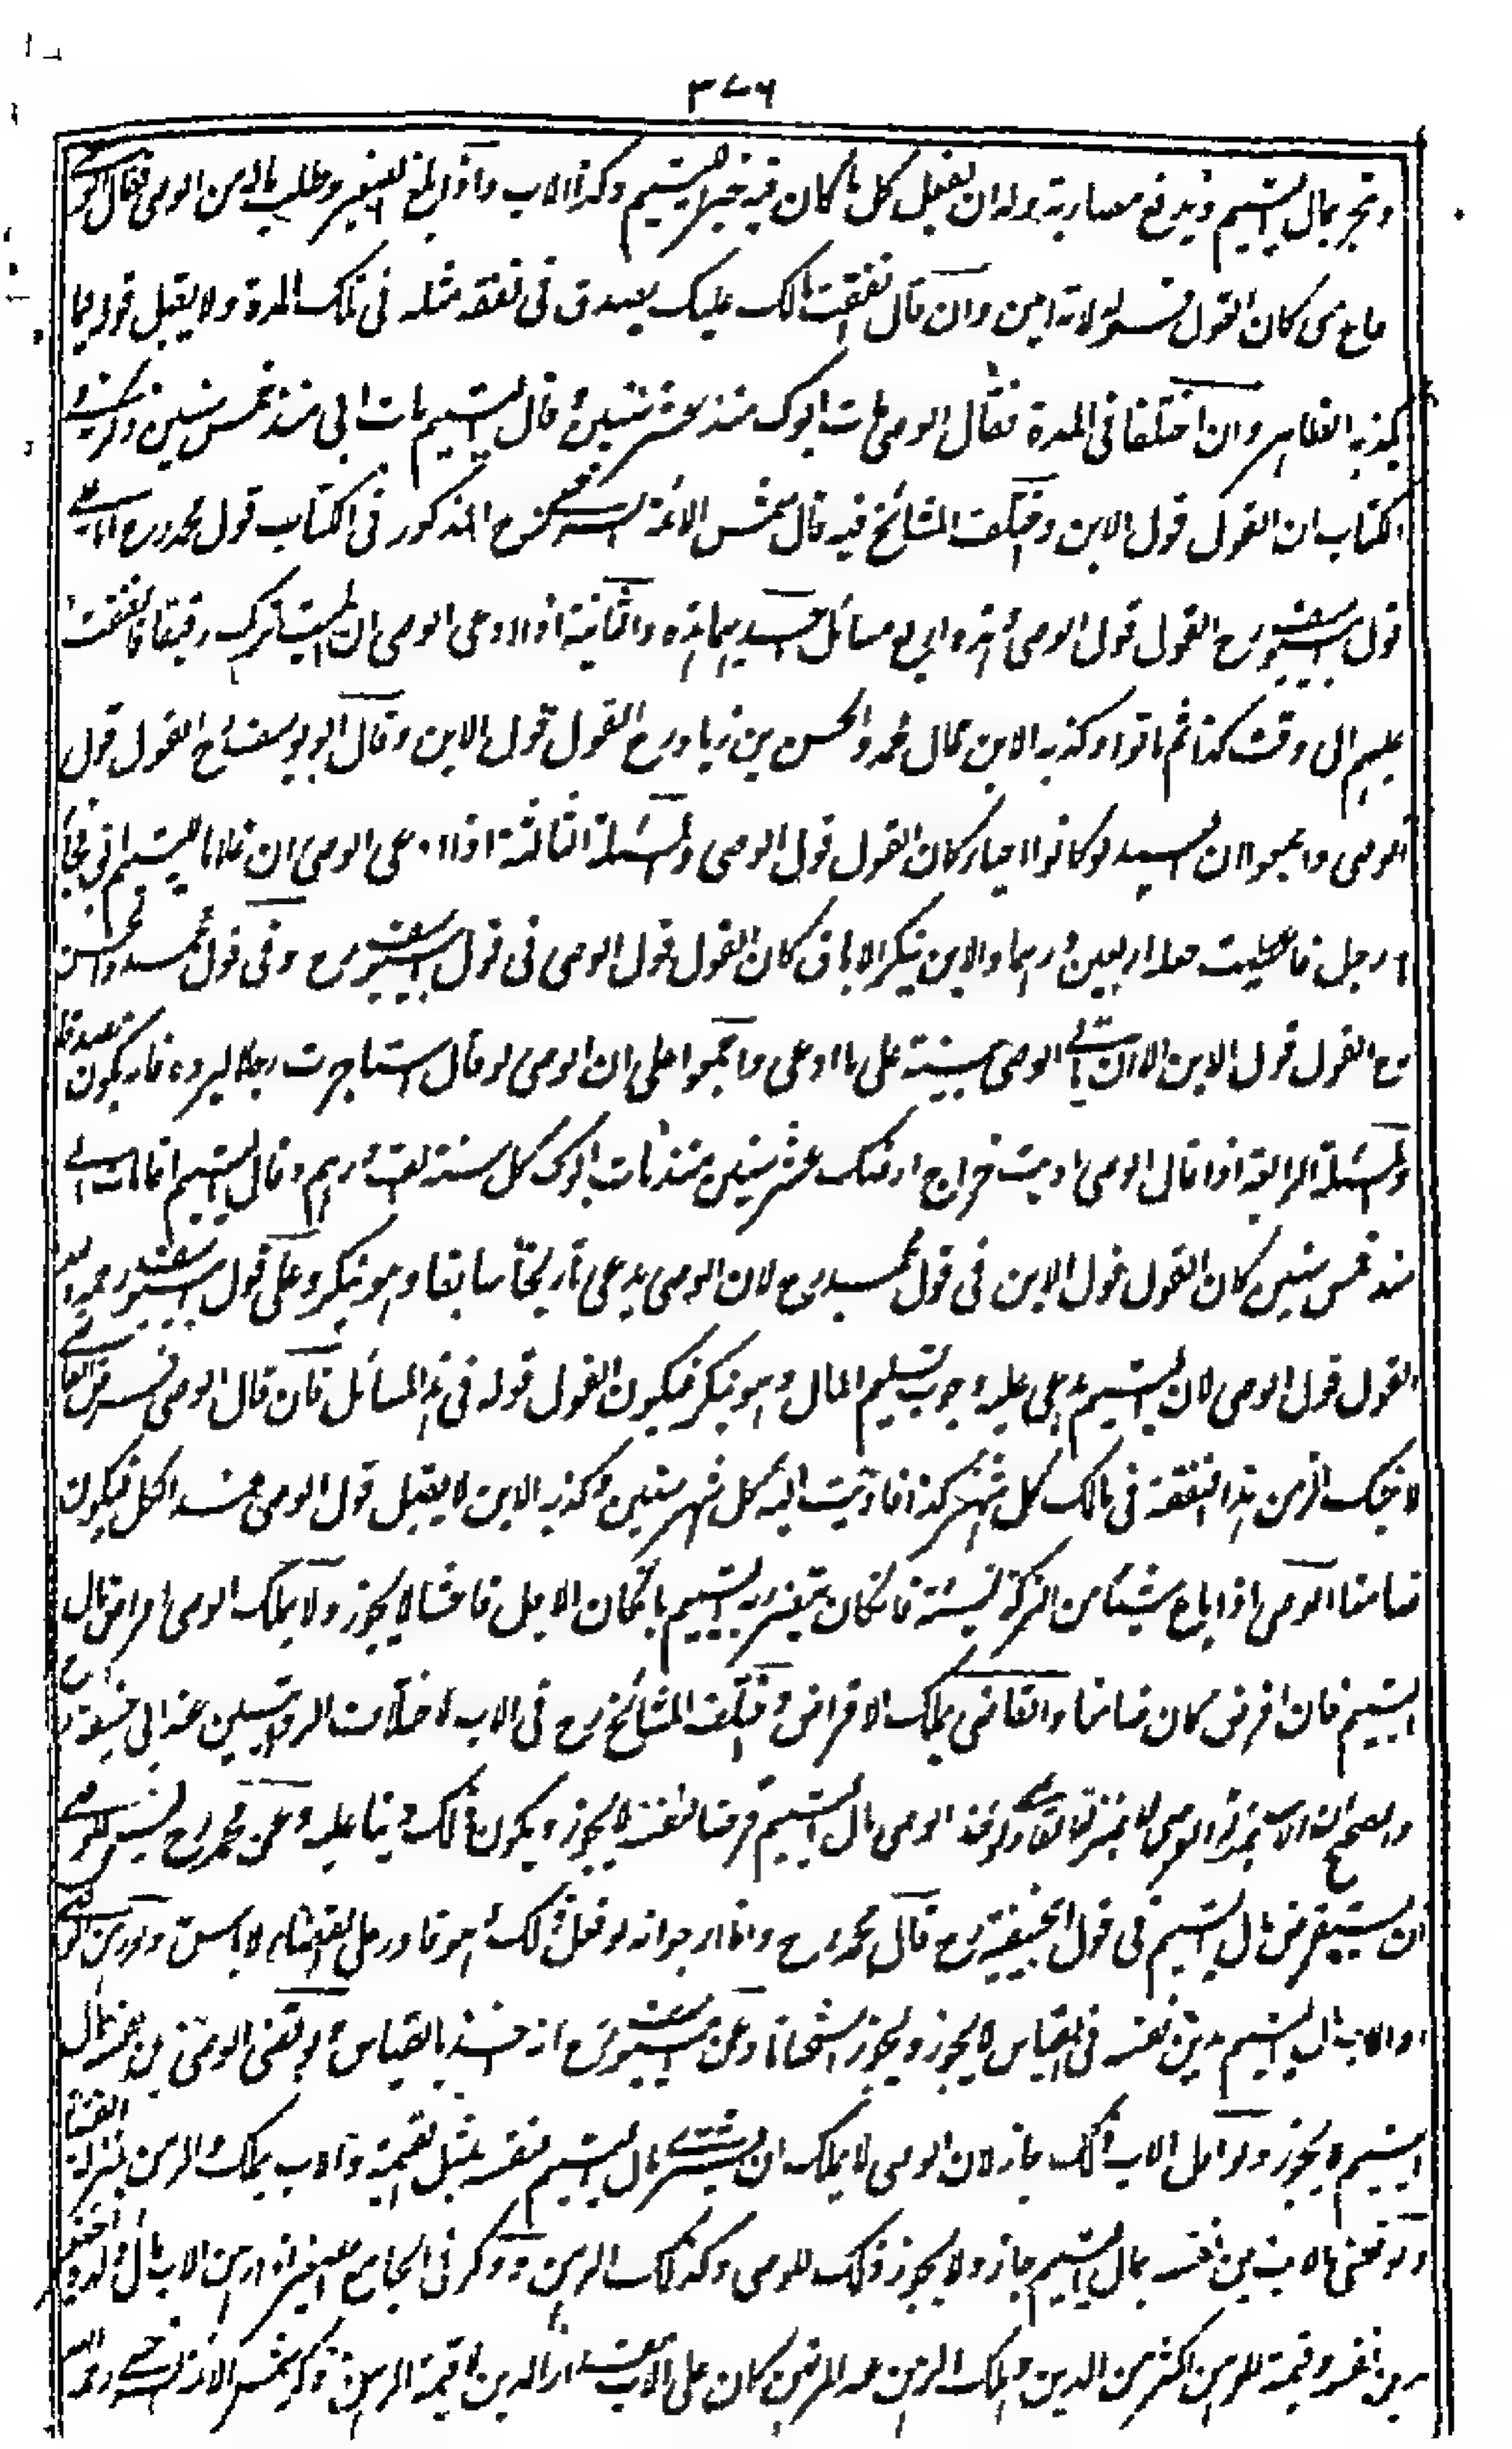 ٣٧٦
ويتجر بمال اليتيم ويدفع مضاربة وله ان يفعل كل ما كان فيه خير لليتيم وكذا الاب واذا بلغ الصغير وطلب ماله من الوصي فقال الوصي
ضاع مني كان القول قوله لانه امين وان قال انفقت مالك عليك يصدق في نفقة مثله في تلك المدة ولا يقبل قوله فيما
يكذبه الظاهر وان اختلفا في المدة فقال الوصي مات ابوك منذ عشر سنين وقال اليتيم مات ابي منذ خمس سنين ذكر في
الكتاب ان القول قول الابن واختلف المشائخ فيه قال شمس الائمة السرخسي رح المذكور في الكتاب قول محمد رح اما على
قول ابي يوسف رح القول قول الوصي وهذه اربع مسائل احديها هذه والثانية اذا ادعى الوصي ان الميت ترك رقيقا فانفقت
عليهم الى وقت كذا ثم ماتوا وكذبه الابن قال محمد والحسن بن زياد رح القول قول الابن وقال ابو يوسف رح القول قول
الوصي واجمعوا ان العبيد لو كانوا احياء كان القول قول الوصي والمسئلة الثالثة اذا ادعى الوصي ان غلاما لليتيم ابق فجاء
به رجل فاعطيت جعله اربعين درهما والابن ينكر الاباق كان القول قول الوصي في قول ابي يوسف رح وفي قول محمد والحسن
رح القول قول الابن الا ان ياتي الوصي ببينة على ما ادعى واجمعوا على ان الوصي لو قال استاجرت رجلا ليرده فانه يكون مصدقا
والمسئلة الرابعة اذا قال الوصي اديت خراج ارضك عشر سنين منذ مات ابوك كل سنة الف درهم وقال اليتيم انما مات ابي
منذ خمس سنين كان القول قول الابن في قول محمد رح لان الوصي يدعي تاريخا سابقا وهو ينكر وعلى قول ابي يوسف رحمه الله
القول قول الوصي لان اليتيم يدعي عليه وجوب تسليم المال وهو ينكر فيكون القول قوله في هذه المسائل فان قال الوصي فرض القاضي
لاخيك الزمن هذا النفقة في مالك كل شهر كذا فاديت اليه لكل شهر منذ سنين وكذبه الابن لا يقبل قول الوصي عند الكل فيكون
ضامنا الوصي اذا باع شيئا من التركة نسيئة فان كان يتضرر به اليتيم بان كان الاجل فاحشا لا يجوز ولا يملك الوصي اقراض مال
اليتيم فان اقرض كان ضامنا والقاضي يملك الاقراض واختلف المشائخ رح في الاب لاختلاف الروايتين عن ابي حنيفة رح
والصحيح ان الاب بمنزلة الوصي لا بمنزلة القاضي ولو اخذ الوصي مال اليتيم قرضا لنفسه لا يجوز ويكون ذلك دينا عليه وعن محمد رح ليس للوصي
ان يستقرض مال اليتيم في قول ابي حنيفة رح قال محمد رح وانا ارجو انه لو فعل ذلك وهو قادر على القضاء لا باس به ولو رهن الوصي
او الاب مال اليتيم بدين نفسه في القياس لا يجوز ويجوز استحسانا وعن ابي يوسف رح انه اخذ بالقياس ولو قضى الوصي دين نفسه بمال
اليتيم لا يجوز ولو فعل الاب ذلك جاز لان الوصي لا يملك ان يشتري مال اليتيم لنفسه بمثل القيمة والاب يملك والرهن بمنزلة القضاء
ولو قضى الاب دين نفسه بمال اليتيم جاز ولا يجوز ذلك للوصي وكذلك الرهن وذكر في الجامع الصغير اذا رهن الاب مال ولده الصغير
بدين نفسه وقيمة الرهن اكثر من الدين وهلك الرهن عند المرتهن كان على الاب مقدار الدين لا قيمة الرهن وذكر شمس الائمة السرخسي رحمه الله